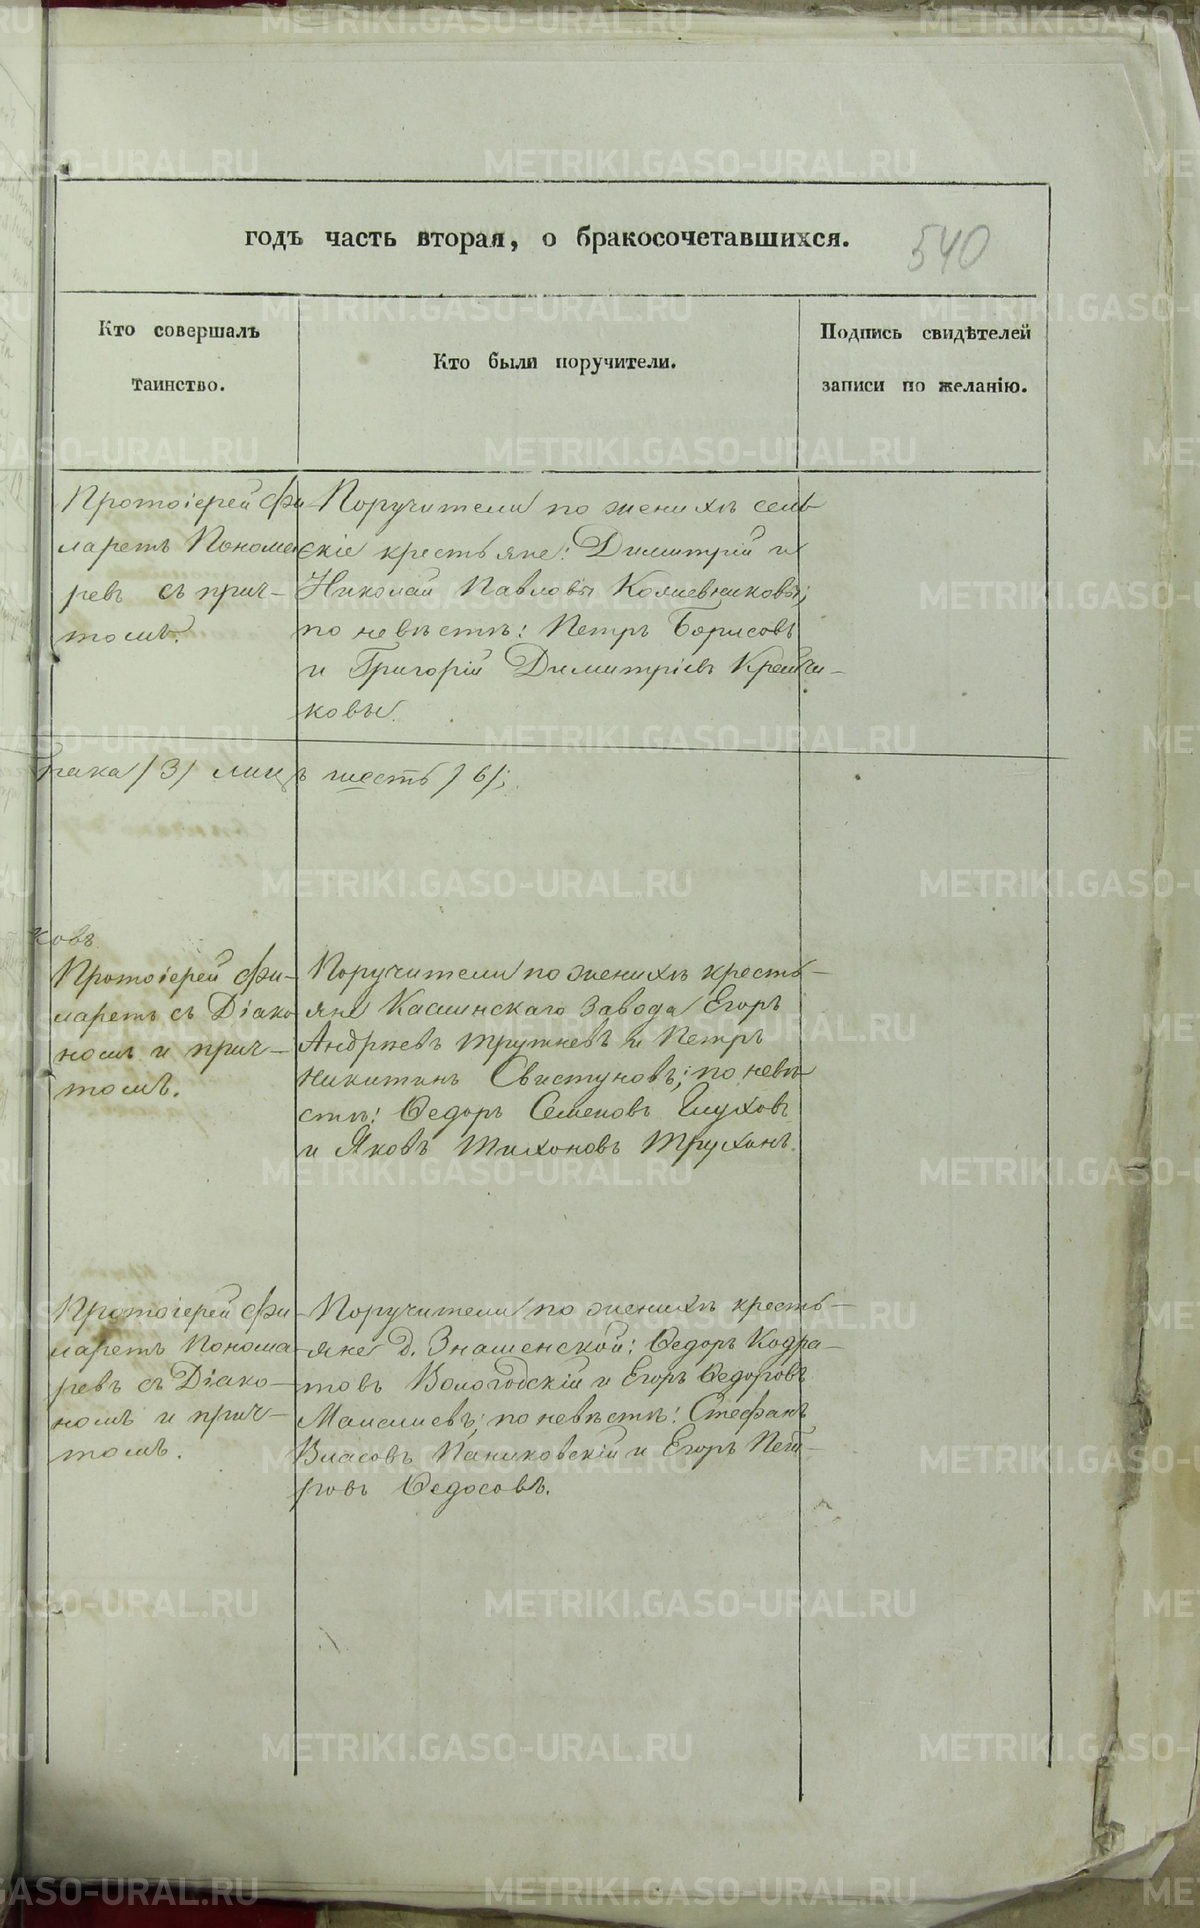 годъ часть вторая, о бракосочетавшихся.
540
Кто совершалъ
таинство.
Кто были поручители.
Подпись свидѣтелей
записи по желанію.
Протоіерей Фи-
ларетъ Понома
ревъ съ прич-
томъ.
Поручители по женихѣ сель
скіе крестьяне: Димитрій и
Николай Павловы
по невѣстѣ: Петръ Борисовъ
и Григорій Димитріевъ
ковы.
брака /3/ лицъ шесть /6/;
ковъ
Протоіерей Фи-
ларетъ съ Діако
номъ и прич-
томъ.
Поручители по женихѣ кресть-
яне Каслинскаго завода Егоръ
Андреевъ и Петръ
Никитинъ Свистуновъ; по невѣ
стѣ: Ѳедоръ Семеновъ Глуховъ
и Яковъ Тихоновъ Трухинъ.
Протоіерей Фи-
ларетъ Понома
ревъ съ Діако-
номъ и прич-
томъ.
Поручители по женихѣ кресть-
яне д. Знаменской: Ѳедоръ Кодра-
товъ Вологодскій и Егоръ Ѳедоровъ
по невѣстѣ: Стефанъ
Власовъ Паниковскій и Егоръ Пет-
ровъ Ѳедосовъ.
METRIKI.GASO-URAL.RU